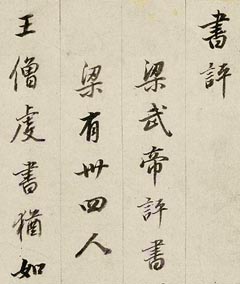 書評
梁武帝評書
梁有卅四人
王僧虔書猶如